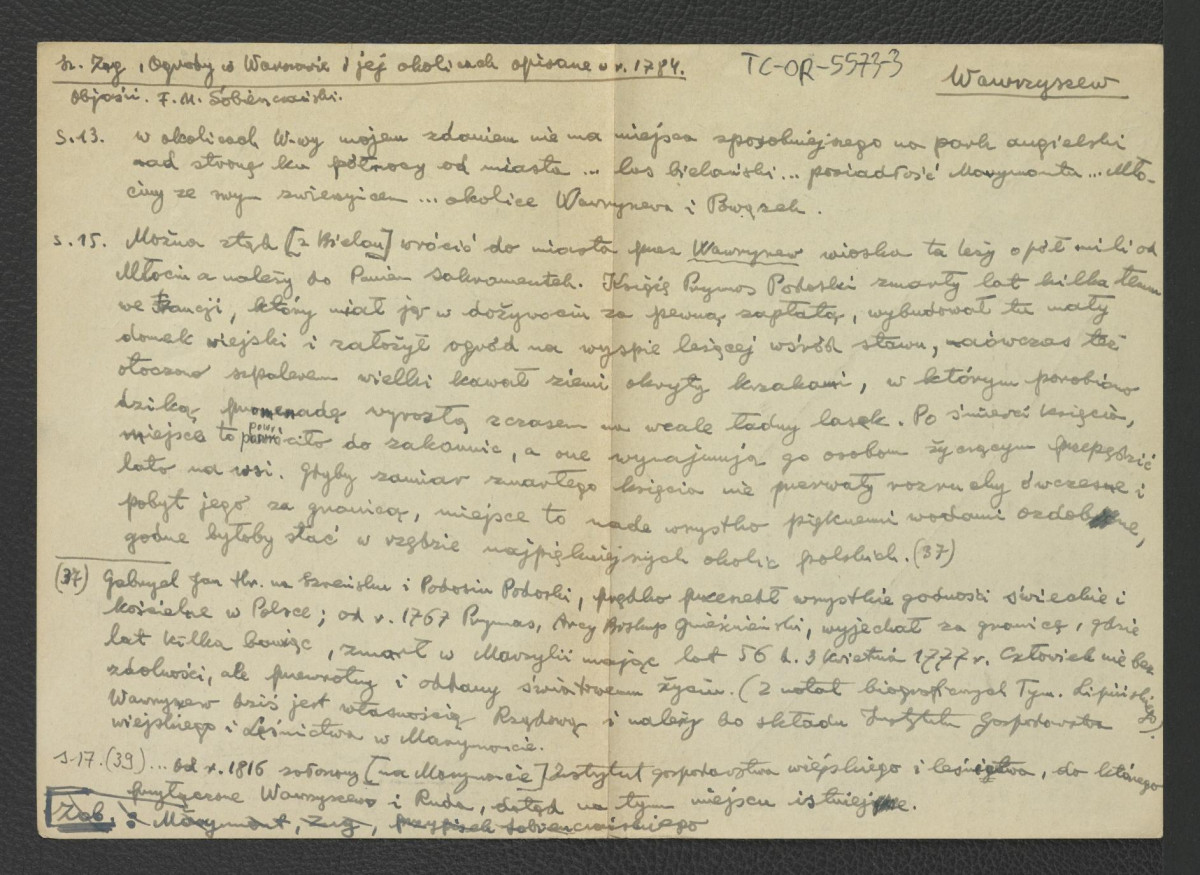 Sz. Zug, Ogrody w Warszawie i jej okolicach opisane w r. 1784.
TC-OR-5573-3
Wawrzyszew
Objaśn. F. M. Sobieszczański.
S. 13. w okolicach W-wy mojem zdaniem nie ma miejsca sposobniejszego na park angielski
nad stronę ku północy od miasta ... las bielański ... posiadłość Marymontu ... Mło-
ciny ze swym zwierzyńcem ... okolice Wawrzyszewa i Powązek.
s. 15. Można stąd [z Bielan] wrócić do miasta przez Wawrzyszew wioska ta leży o pół mili od
Młocin a należy do Panien Sakramentek. Książę Prymas Podoski zmarły lat kilka temu
we Francji, który miał ją w dożywociu za pewną zapłatą, wybudował tu mały
domek wiejski i założył ogród na wyspie leżącej wśród stawu, naówczas też
otoczono szpalerem wielki kawał ziemi okryty krzakami, w którym porobiono
dziką promenadę wyrosłą z czasem na wcale ładny lasek. Po śmierci księcia,
miejsce to powróciło do zakonnic, a one wynajmują go osobom życzącym przepędzić
lato na wsi. Gdyby zamiar zmarłego księcia nie przerwały rozruchy ówczesne i
pobyt jego za granicą, miejsce to nade wszystko pięknemi wodami ozdobne,
godne byłoby stać w rzędzie najpiękniejszych okolic polskich. (37)
(37) Gabryel Jan Hr. na Szreńsku i Podosiu Podoski, prędko przeszedł wszystkie godności świeckie i
kościelne w Polsce; od r. 1767 Prymas, Arcy Biskup Gnieźnieński, wyjechał za granicę, gdzie
lat kilka bawiąc, zmarł w Marsylii mając lat 56 d. 3 kwietnia 1777 r. Człowiek nie bez
zdolności, ale przewrotny i oddany światowemu życiu. (Z notat biograficznych Tym. Lipińskiego).
Wawrzyszew dziś jest własnością Rządową i należy do składu Instytutu Gospodarstwa
wiejskiego i Leśnictwa w Marymoncie.
s. 17. (39) ... Od r. 1816 założony [na Marymoncie] Instytut gospodarstwa wiejskiego i leśnictwa, do którego
przyłączone Wawrzyszew i Ruda, dotąd na tym miejscu istnieje.
Zob.: Marymont, Zug, przypisek Sobieszczańskiego